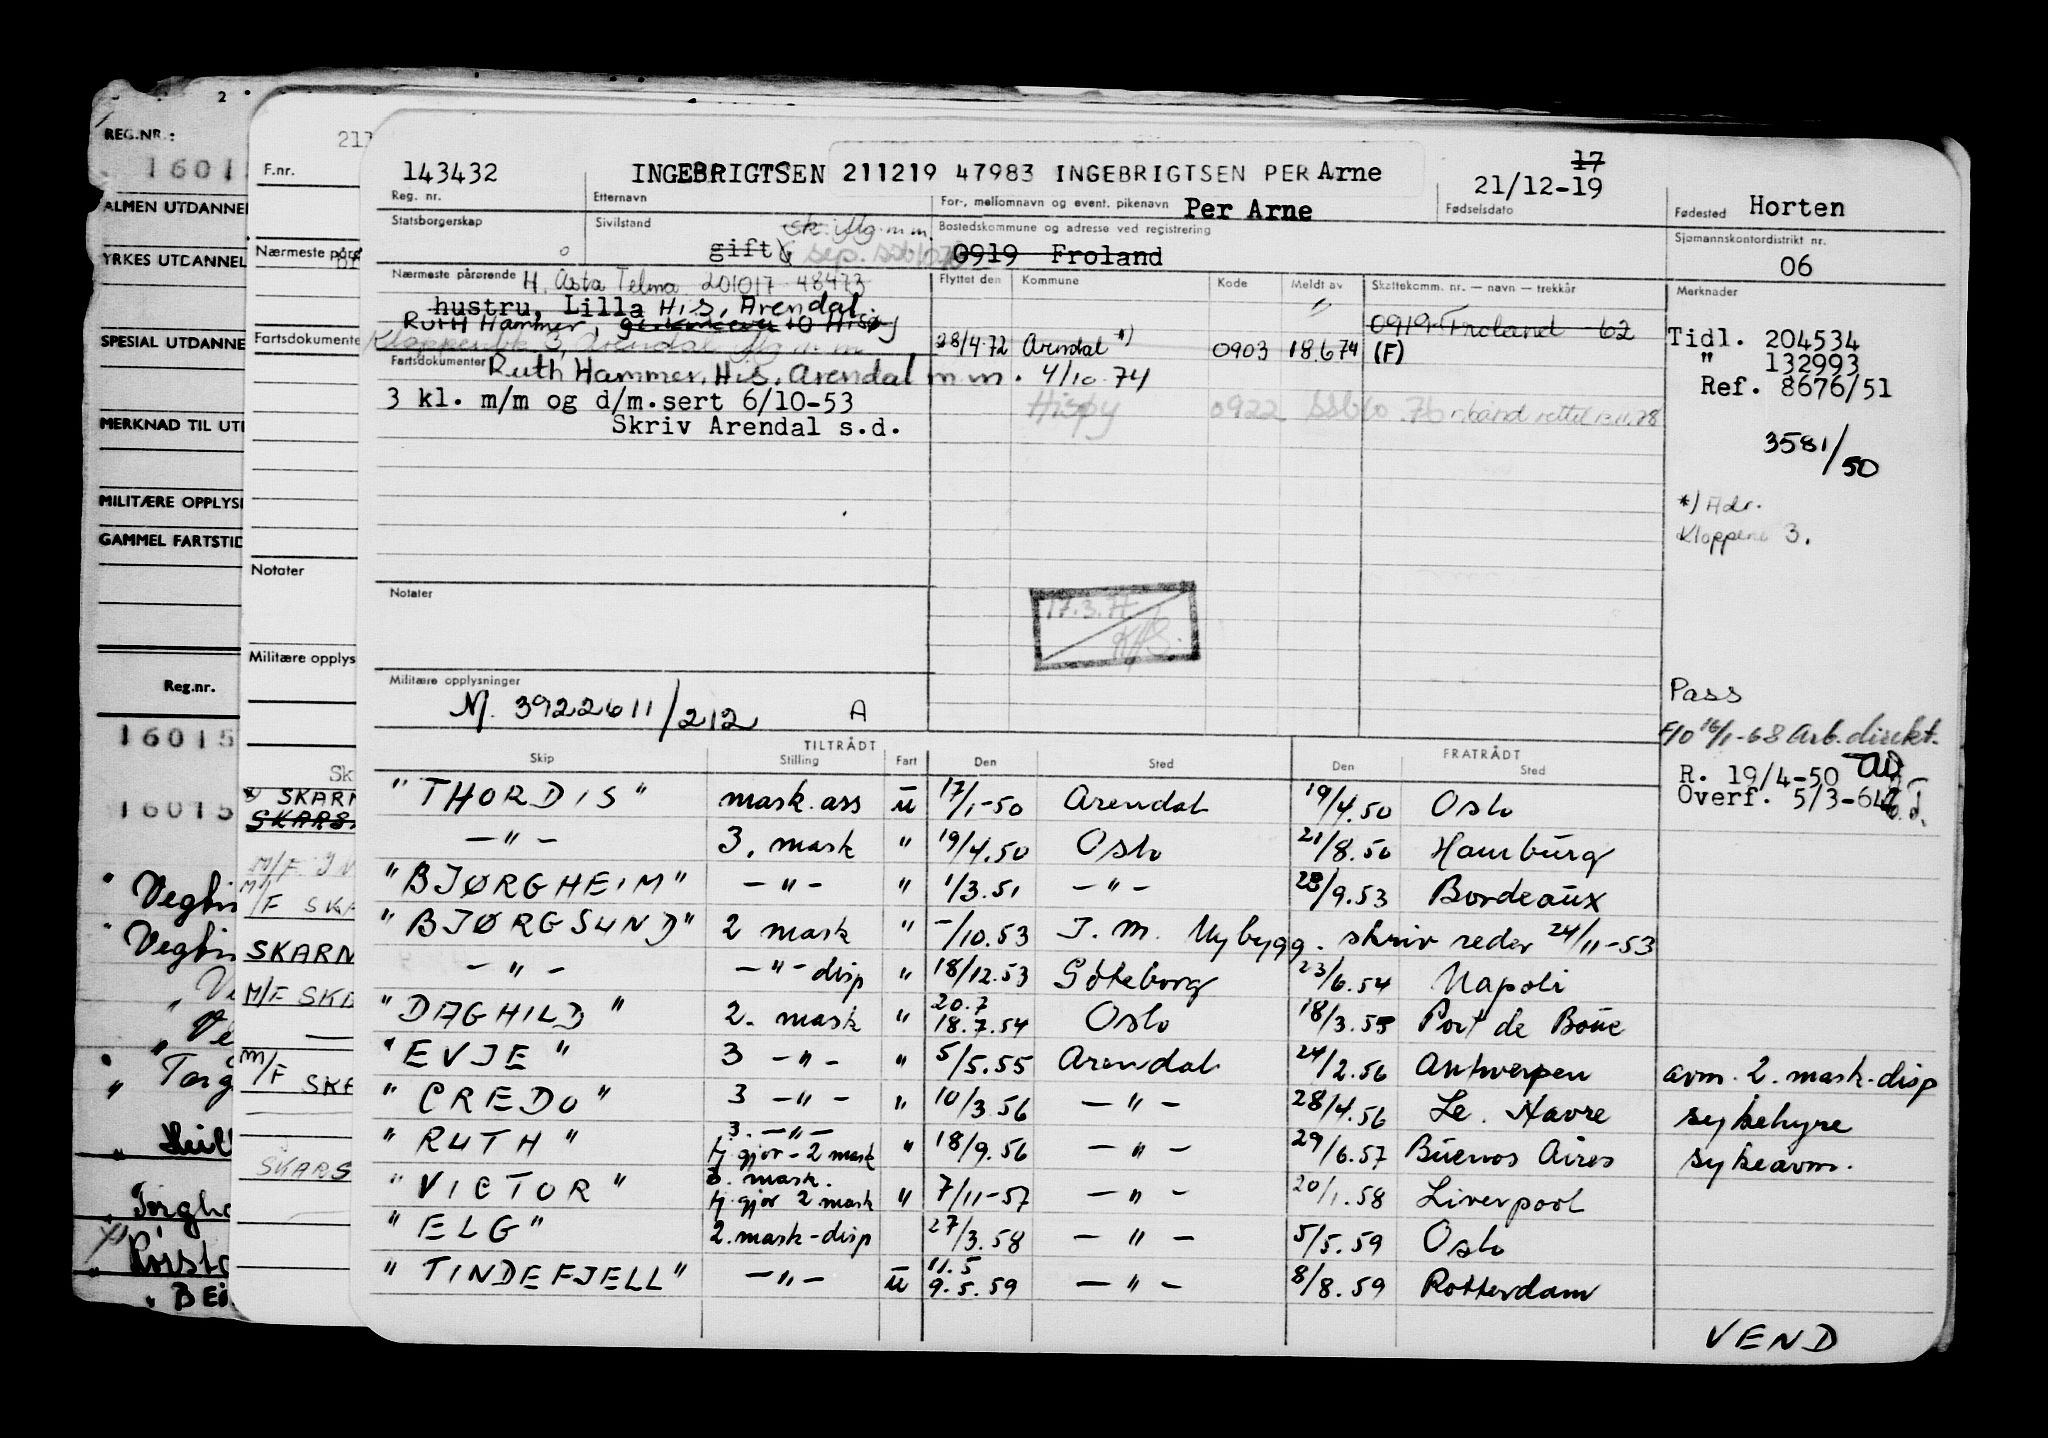 2
REG.NR.:
1601
ALMEN UTDANNEL
YRKES UTDANNEL
SPESIAL UTDANNE
MERKNAD TIL UT
MILITÆRE OPPLYS
GAMMEL FARTSTID
Reg.nr.
16015
16015
Vegtin
Vegtin
Ve
Torg
Torgha
BEI
F.nr.
211
Nærmeste pårø
Fartsdokumente
Notater
Militære opplys
Sk
SKARN
SKARS
M/F SKA
SKARN
M/F SKA
M/F SKA
SKARS
143432 INGEBRIGTSEN 211219 47983 INGEBRIGTSEN PER Arne 17
21/12-19
Reg. nr. Etternavn For-, mellomnavn og event. pikenavn Per Arne Fødselsdato Fødested Horten
Statsborgerskap Sivilstand Bostedskommune og adresse ved registrering Sjømannskontordistrikt nr.
gift sep. 0919 Froland 06
Nærmeste pårørende H. Asta Telma 201017 48473 Flyttet den Kommune Kode Meldt av Skattekomm. nr. — navn — trekkår Merknader
hustru, Lilla His, Arendal. "
Ruth Hammer, Hisøy 0919 Froland 62 Tidl. 204534
Kloppene 3, Arendal 28/4.72 Arendal *) 0903 18.6.74 (F) " 132993
Fartsdokumenter Ruth Hammer, His, Arendal m m. 4/10.74 Ref. 8676/51
3 kl. m/m og d/m.sert 6/10-53 Hisøy 0922
Skriv Arendal s.d.
3581/50
*) Adr.
Kloppene 3.
Notater
17.3.77
Militære opplysninger
M. 3922611/212 A
Pass
F/O 16/1-68 Arb.direkt.
R. 19/4-50
Overf. 5/3-64
TILTRÅDT FRATRÅDT
Skip Stilling Fart Den Sted Den Sted
"THORDIS" mask.ass u 17/1-50 Arendal 19/4.50 Oslo
— " — 3. mask " 19/4.50 Oslo 21/8.50 Hamburg
"BJØRGHEIM" — " — " 1/3.51 — " — 23/9.53 Bordeaux
"BJØRGSUND" 2 mask " -/10.53 I. M. Nybygg. skriv reder 24/11-53
— " — — " — disp " 18/12.53 Göteborg 23/6.54 Napoli
"DAGHILD" 2. mask " 20.7 18.7.54 Oslo 18/3.55 Port de Boue
"EVJE" 3 — " — " 5/5.55 Arendal 24/2.56 Antwerpen avm. 2. mask-disp
"CREDO" 3 — " — " 10/3.56 — " — 28/4.56 Le. Havre sykehyre
"RUTH" 3. — " — tj.gjør - 2 mask " 18/9.56 — " — 29/6.57 Buenos Aires sykeavm.
"VICTOR" 3. mask. tj.gjør 2 mask " 7/11-57 — " — 20/1.58 Liverpool
"ELG" 2.mask-disp 27/3.58 — " — 5/5.59 Oslo
"TINDEFJELL" — " — u 11.5 9.5.59 — " — 8/8.59 Rotterdam
VEND